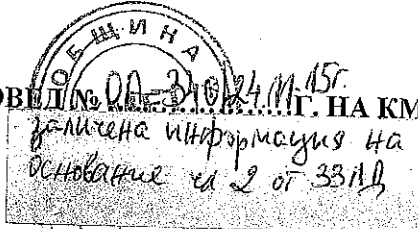 ОБЩИНА
ОВЕД № ОА-340/24.11.15г. Г. НА КМ
заличена информация на
основание чл 2 от ЗЗЛД